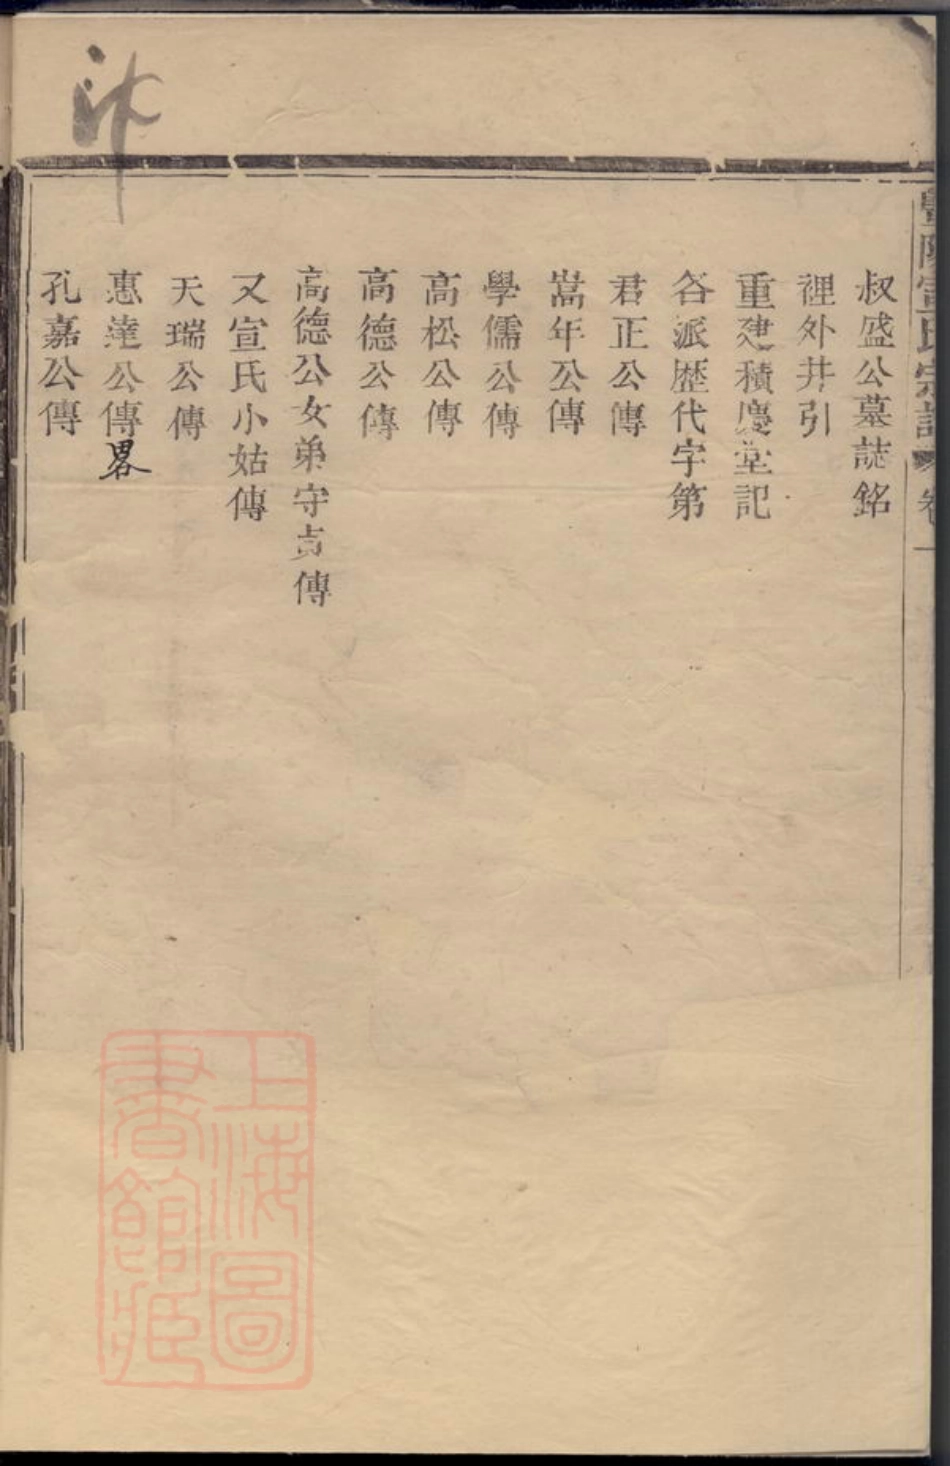 暨陽宣氏宗譜 卷一
叔盛公墓誌銘
裡外井引
重建積慶堂記
各派歷代字第
君正公傳
嵩年公傳
學儒公傳
高松公傳
高德公傳
高德公女弟守貞傳
又宣氏小姑傳
天瑞公傳
惠達公傳畧
孔嘉公傳
上海圖
書館藏